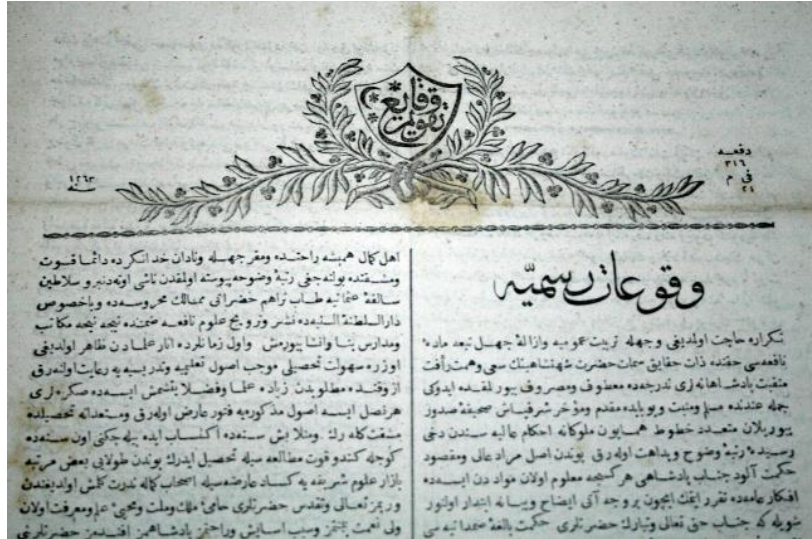 تقويم وقايع
دفعه
٣١٦
فى م
٢١
سنه ١٢٦٣
وقوعات رسميّه
تكراره حاجت اولديغى وجهله تربيت عموميه وازالۀ جهل تبعه ماده
نافعه‌سى حقنده ذات حقايق سمات حضرت شهنشاهينك سعى وهمت رأفت
منقبت پادشاهانه‌لرى ندرجه‌ده معطوف ومصروف بيورلقده ايدوكى
جمله عندنده مسلم ومثبت وبوبابده مقدم ومؤخر شرفپاش صحيفۀ صدور
بيوريلان متعدد خطوط همايون ملوكانه احكام عاليه سندن دخى
رسيدۀ رتبۀ وضوح وبداهت اوله‌رق بوندن اصل مراد عالى ومقصود
حكمت آلود جناب پادشاهى هر كسجه معلوم اولان موادن ايسه‌ده
افكار عامه‌ده تقرر ايتمك ايچون بر وجه آتى ايضاح وبيانه ابتدار اولنور
شويله كه جناب حق تعالى وتبارك حضرتلرى حكمت بالغۀ صمدانيه سى
اهل كمال هميشه راحتده ومقر جهله ونادان خدانكرده دائما قوت
ومشقتده بولنه‌جغى رتبۀ وضوحه پيوسته اولمقدن ناشى اوته‌دنبرو سلاطين
سالفۀ عثمانيه طاب ثراهم حضراتى ممالك محروسه‌ده وباخصوص
دارالسلطنة السنيه‌ده نشر وترويج علوم نافعه ضمننده نيجه نيجه مكاتب
ومدارس بنا وانشا بيورمش واول زمانلرده اثار علمادن ظاهر اولديغى
اوزره سهولت تحصيلى موجب اصول تعليميه وتدريسيه يه رعايت اولنه‌رق
از وقتده مطلوبدن زياده علما وفضلا يتشمش ايسه‌ده صكره‌لرى
هر نصل ايسه اصول مذكوره‌يه فتور عارض اوله‌رق ومستعدانه تحصيلده
مشقت كله‌رك ومثلا بش سنه‌ده اكتساب ايده بيله‌جكى اون سنه‌ده
كوجله كندو قوت مطالعه سيله تحصيل ايدرك بوندن طولايى بعض مرتبه
بازار علوم شريفه‌يه كساد عارضه‌سيله اصحاب كماله ندرت كلمش اولديغندن
وربمز تعالى وتقدس حضرتلرى حامئ ملك وملت ومحيئ علم ومعرفت اولان
ولى نعمت بيمنتمز وسبب اسايش وراحتمز پادشاهمز افندمز حضرتلرى